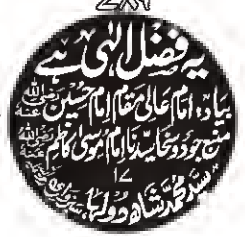 ۷۸۶
یہ فضل الٰہی ہے
بیاد امام عالی مقام امام حسین رضی اللہ عنہ
منبع جود و سخا سیدنا امام موسیٰ کاظم رضی اللہ عنہ
۱۷
سید محمد شاہ دولہا